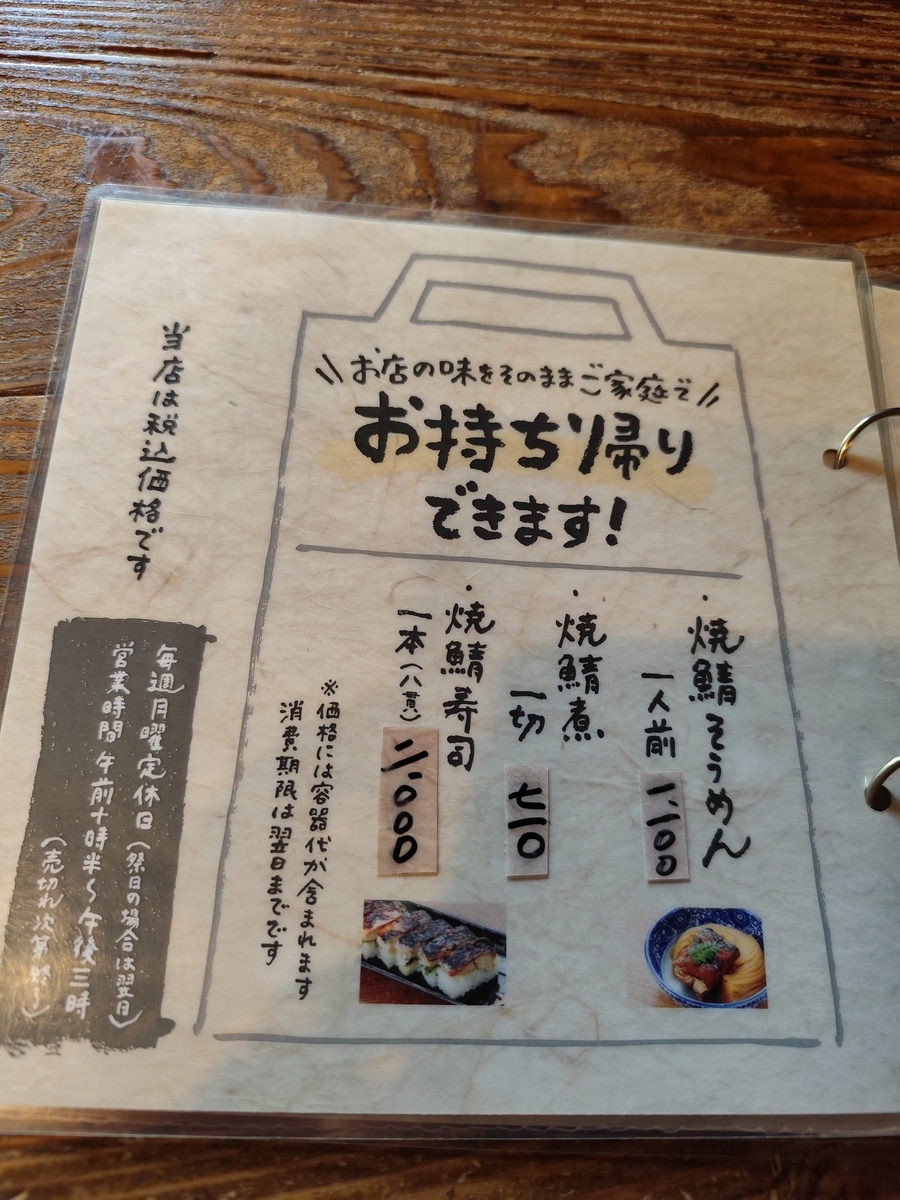 お店の味をそのままご家庭で
お持ち帰り
できます!
・焼鯖そうめん
一人前 一.一00
・焼鯖煮
一切 七一0
・焼鯖寿司
一本(八貫) 二.000
※価格には容器代が含まれます
消費期限は翌日までです
当店は税込価格です
毎週月曜定休日(祭日の場合は翌日)
営業時間 午前十時半〜午後三時
(売切れ次第終了)